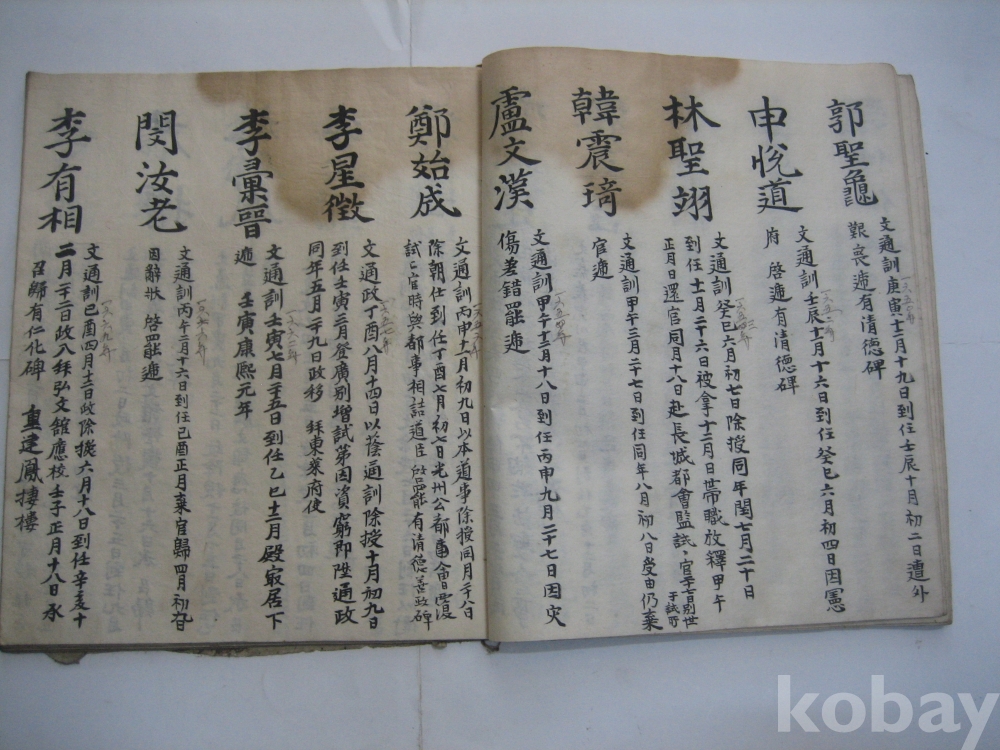 郭聖龜
文通訓庚寅十二月十九日到任壬辰十月初二日遭外
艱喪遞有清德碑
申悅道
文通訓壬辰十二月十六日到任癸巳六月初四日因憲
府啓遞有清德碑
林聖翊
文通訓癸巳六月初七日除授同年閏七月二十日
到任十一月二十六日被拿十二月日帶職放釋甲午
正月日還官同月十八日赴長城都會監試
韓震琦
文通訓甲午三月二十七日到任同年八月初八日受由仍棄
官遞
盧文漢
文通訓甲午十二月十八日到任丙申九月二十七日因灾
傷差錯罷遞
鄭始成
文通訓丙申十二月初九日以本道事除授同月二十八日
除朝仕到任丁酉七月初七日光州公都會日覆
試試官時與都事相詰道臣啓罷有清德善政碑
李星徵
文通政丁酉八月十四日以蔭通訓除授十月初九日
到任壬寅二月登廣別增試第因資窮即陞通政
同年五月二十九日政移拜東萊府使
李彙晉
文通訓壬寅七月二十五日到任乙巳十二月殿最居下
遞 壬寅康熙元年
閔汝老
文通訓丙午二月十六日到任己酉正月棄官歸四月初九日
因辭狀啓罷遞
李有相
文通訓己酉四月三日政除授六月十八日到任辛亥十
二月二十二日政入拜弘文館應校壬子正月十八日承
召歸有仁化碑 重建鳳棲樓
kobay